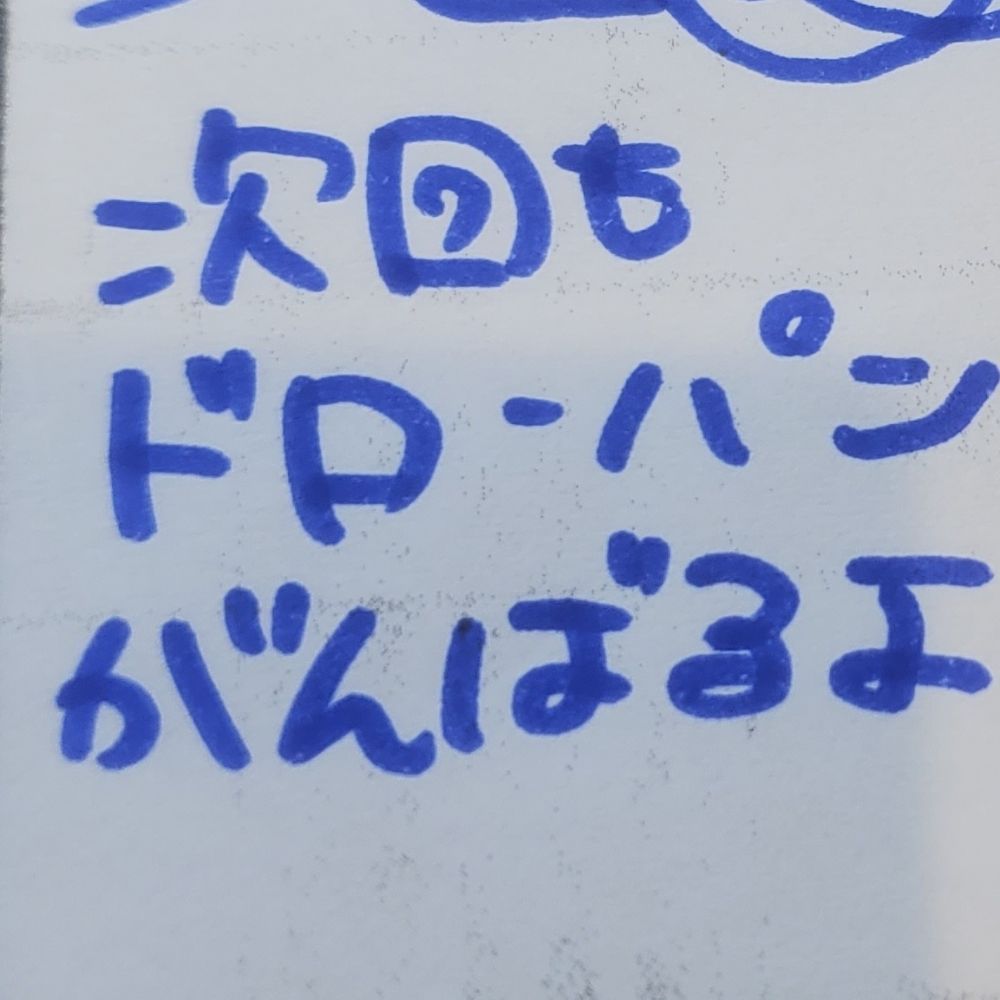 次回も
ドローパン
がんばるよ